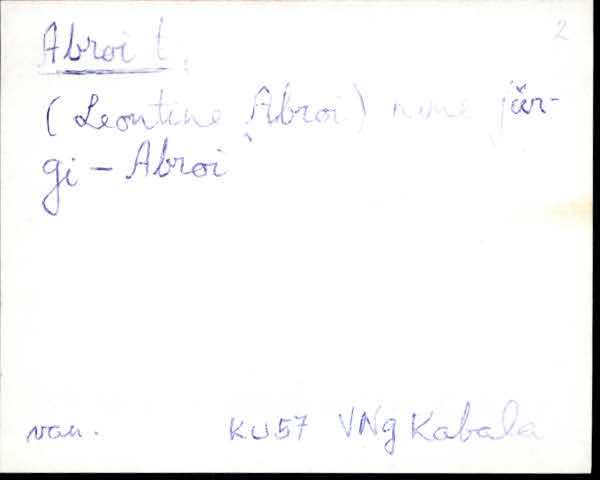 2
Abroi t.
(Leontine Abroi) nime järgi - Abroi
van. KU57 VNg Kabala